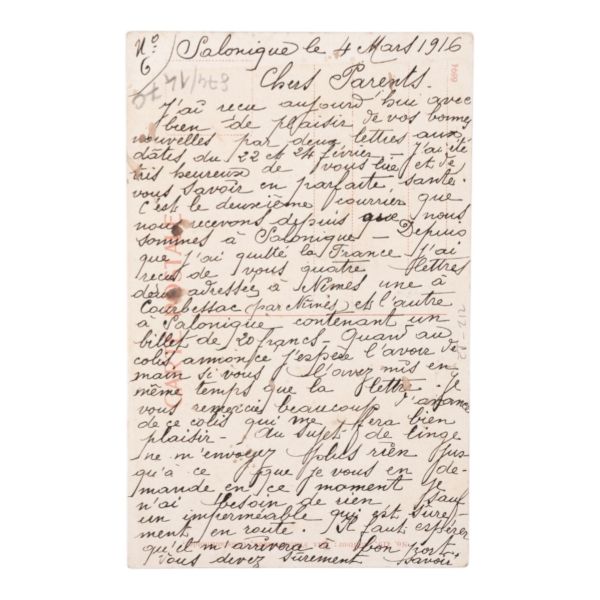 N° 6
Salonique le 4 Mars 1916
Chers Parents.
J'ai recu aujourd'hui avec
bien de plaisir de vos bonnes
nouvelles par deux lettres aux
dates du 22 et 24 février - J'ai été
très heureux de vous lire et de
vous savoir en parfaite santé.
C'est le deuxième courrier que
nous recevons depuis que nous
sommes à Salonique - Depuis
que j'ai quitté la France j'ai
recus de vous quatre lettres
deux adressée à Nîmes une à
Courbessac (par Nîmes) et l'autre
à Salonique contenant un
billet de 20 francs - Quand au
colis annoncé j'espère l'avoir de
main si vous l'avez mis en
même temps que la lettre. Je
vous remercie beaucoup d'avance
de ce colis qui me fera bien
plaisir - Au sujet de linge
ne m'envoyez plus rien jus
qu'à ce que je vous en de-
mande en ce moment je
n'ai besoin de rien sauf
un imperméable qui est sure-
ment en route. Il faut espérer
qu'il m'arrivera à bon port
vous devez sûrement savoir
CARTE POSTALE
6694